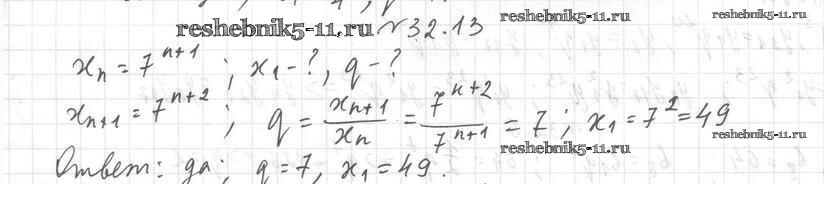 reshebnik5-11.ru №32.13 reshebnik5-11.ru reshebnik5-11.ru
xₙ = 7ⁿ⁺¹ ; x₁ - ?, q - ?
xₙ₊₁ = 7ⁿ⁺² ; q = xₙ₊₁/xₙ = 7ⁿ⁺²/7ⁿ⁺¹ = 7 ; x₁ = 7² = 49
reshebnik5-11.ru
reshebnik5-11.ru
Ответ: да; q = 7, x₁ = 49.